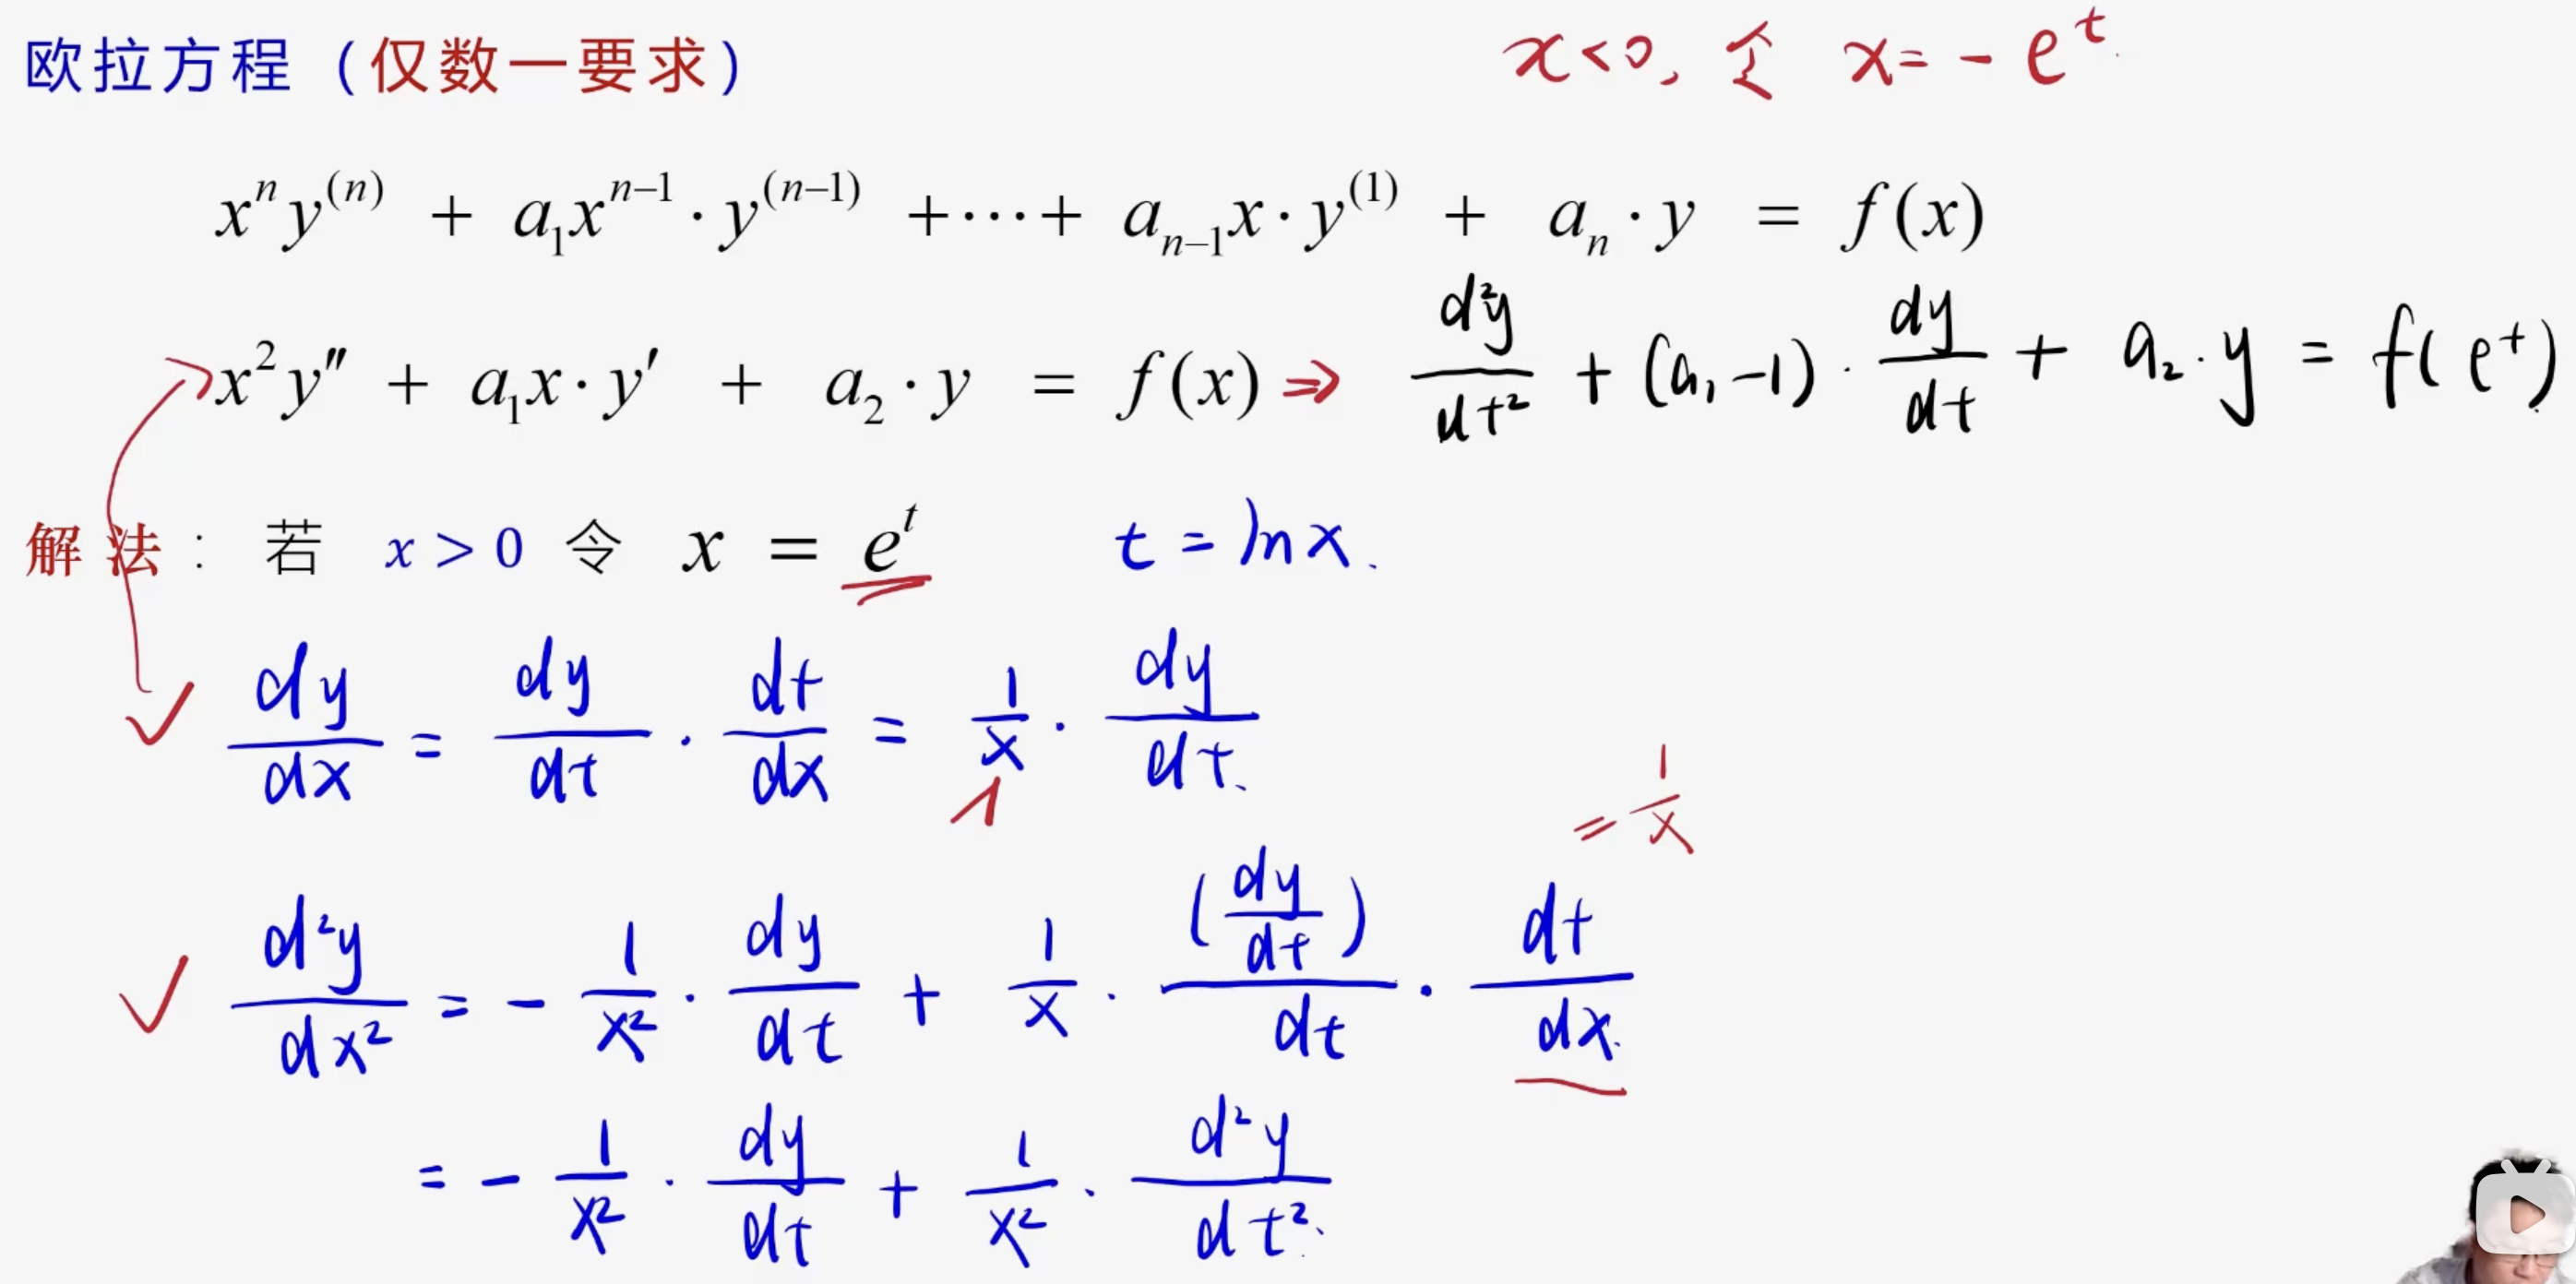 欧拉方程（仅数一要求） x<0, 令 x = - e^t.
x^n y^(n) + a_1 x^(n-1) · y^(n-1) + ··· + a_(n-1) x · y^(1) + a_n · y = f(x)
x^2 y″ + a_1 x · y′ + a_2 · y = f(x) ⇒ d²y/dt² + (a_1 - 1) · dy/dt + a_2 · y = f(e^t).
解法： 若 x > 0 令 x = e^t t = ln x.
✓ dy/dx = dy/dt · dt/dx = 1/x · dy/dt.
= 1/x
✓ d²y/dx² = - 1/x² · dy/dt + 1/x · (dy/dt)/dt · dt/dx.
= - 1/x² · dy/dt + 1/x² · d²y/dt².